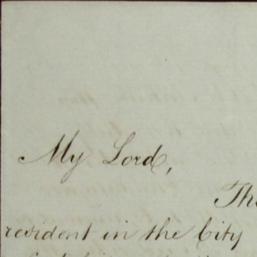 My Lord,
The
resident in the City